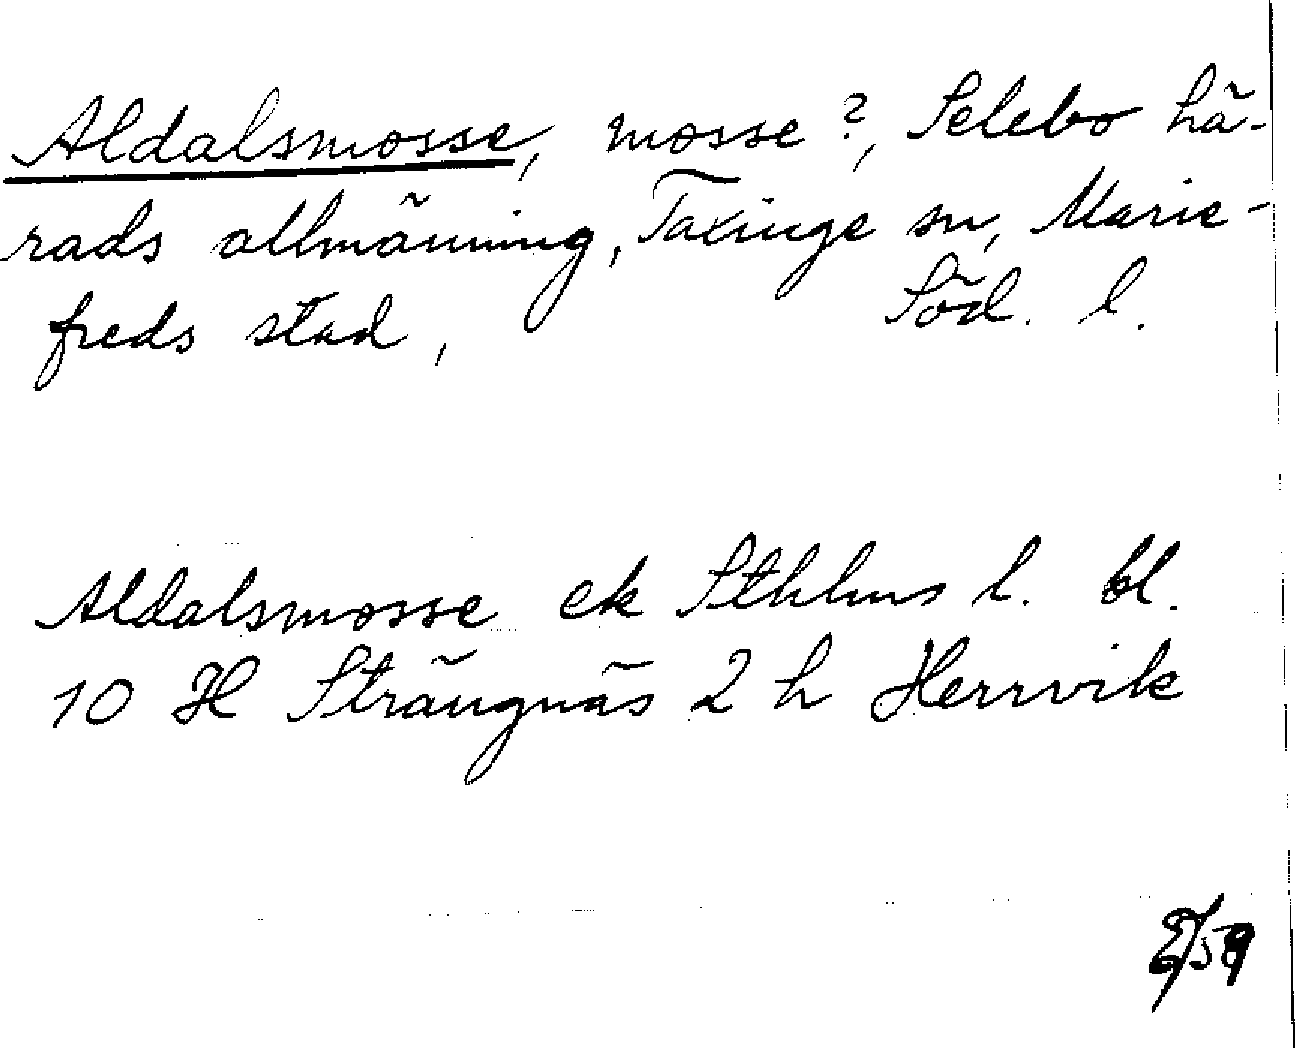 Aldalsmosse, mosse?, Selebo hä-
rads allmänning, Taxinge sn, Marie-
freds stad, Söd. l.
Aldalsmosse ek Sthlms l. bl.
10 H Strängnäs 2 h Herrvik